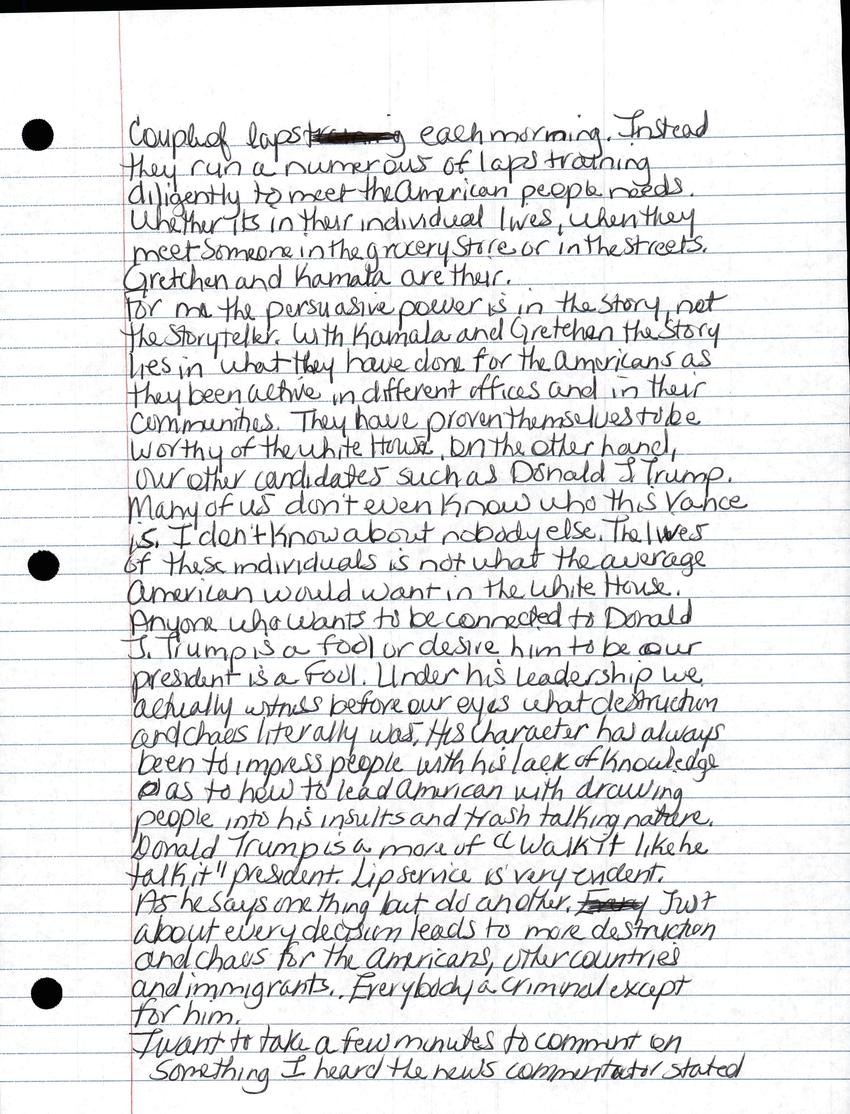 Couple of laps each morning. Instead
they run a numerous of laps training
diligently to meet the American people needs.
Whether its in their individual lives, when they
meet someone in the grocery store or in the streets.
Gretchen and Kamala are their.
For me the persuasive power is in the story, not
the storyteller. With Kamala and Gretchen the story
lies in what they have done for the Americans as
they been active in different offices and in their
communities. They have proven themselves to be
worthy of the White House. On the other hand,
our other candidates such as Donald J Trump.
Many of us don't even know who this Vance
is. I don't know about nobody else. The lives
of these individuals is not what the average
American would want in the White House.
Anyone who wants to be connected to Donald
J. Trump is a fool or desire him to be our
president is a fool. Under his leadership we
actually witness before our eyes what destruction
and chaos literally was. His character has always
been to impress people with his lack of knowledge
as to how to lead American with drawing
people into his insults and trash talking nature.
Donald Trump is a more of a "Walk it like he
talk it" president. Lip service is very evident.
As he says one thing but do another. Just
about every decision leads to more destruction
and chaos for the Americans, other countries
and immigrants.. Everybody a criminal except
for him.
I want to take a few minutes to comment on
something I heard the news commentator stated